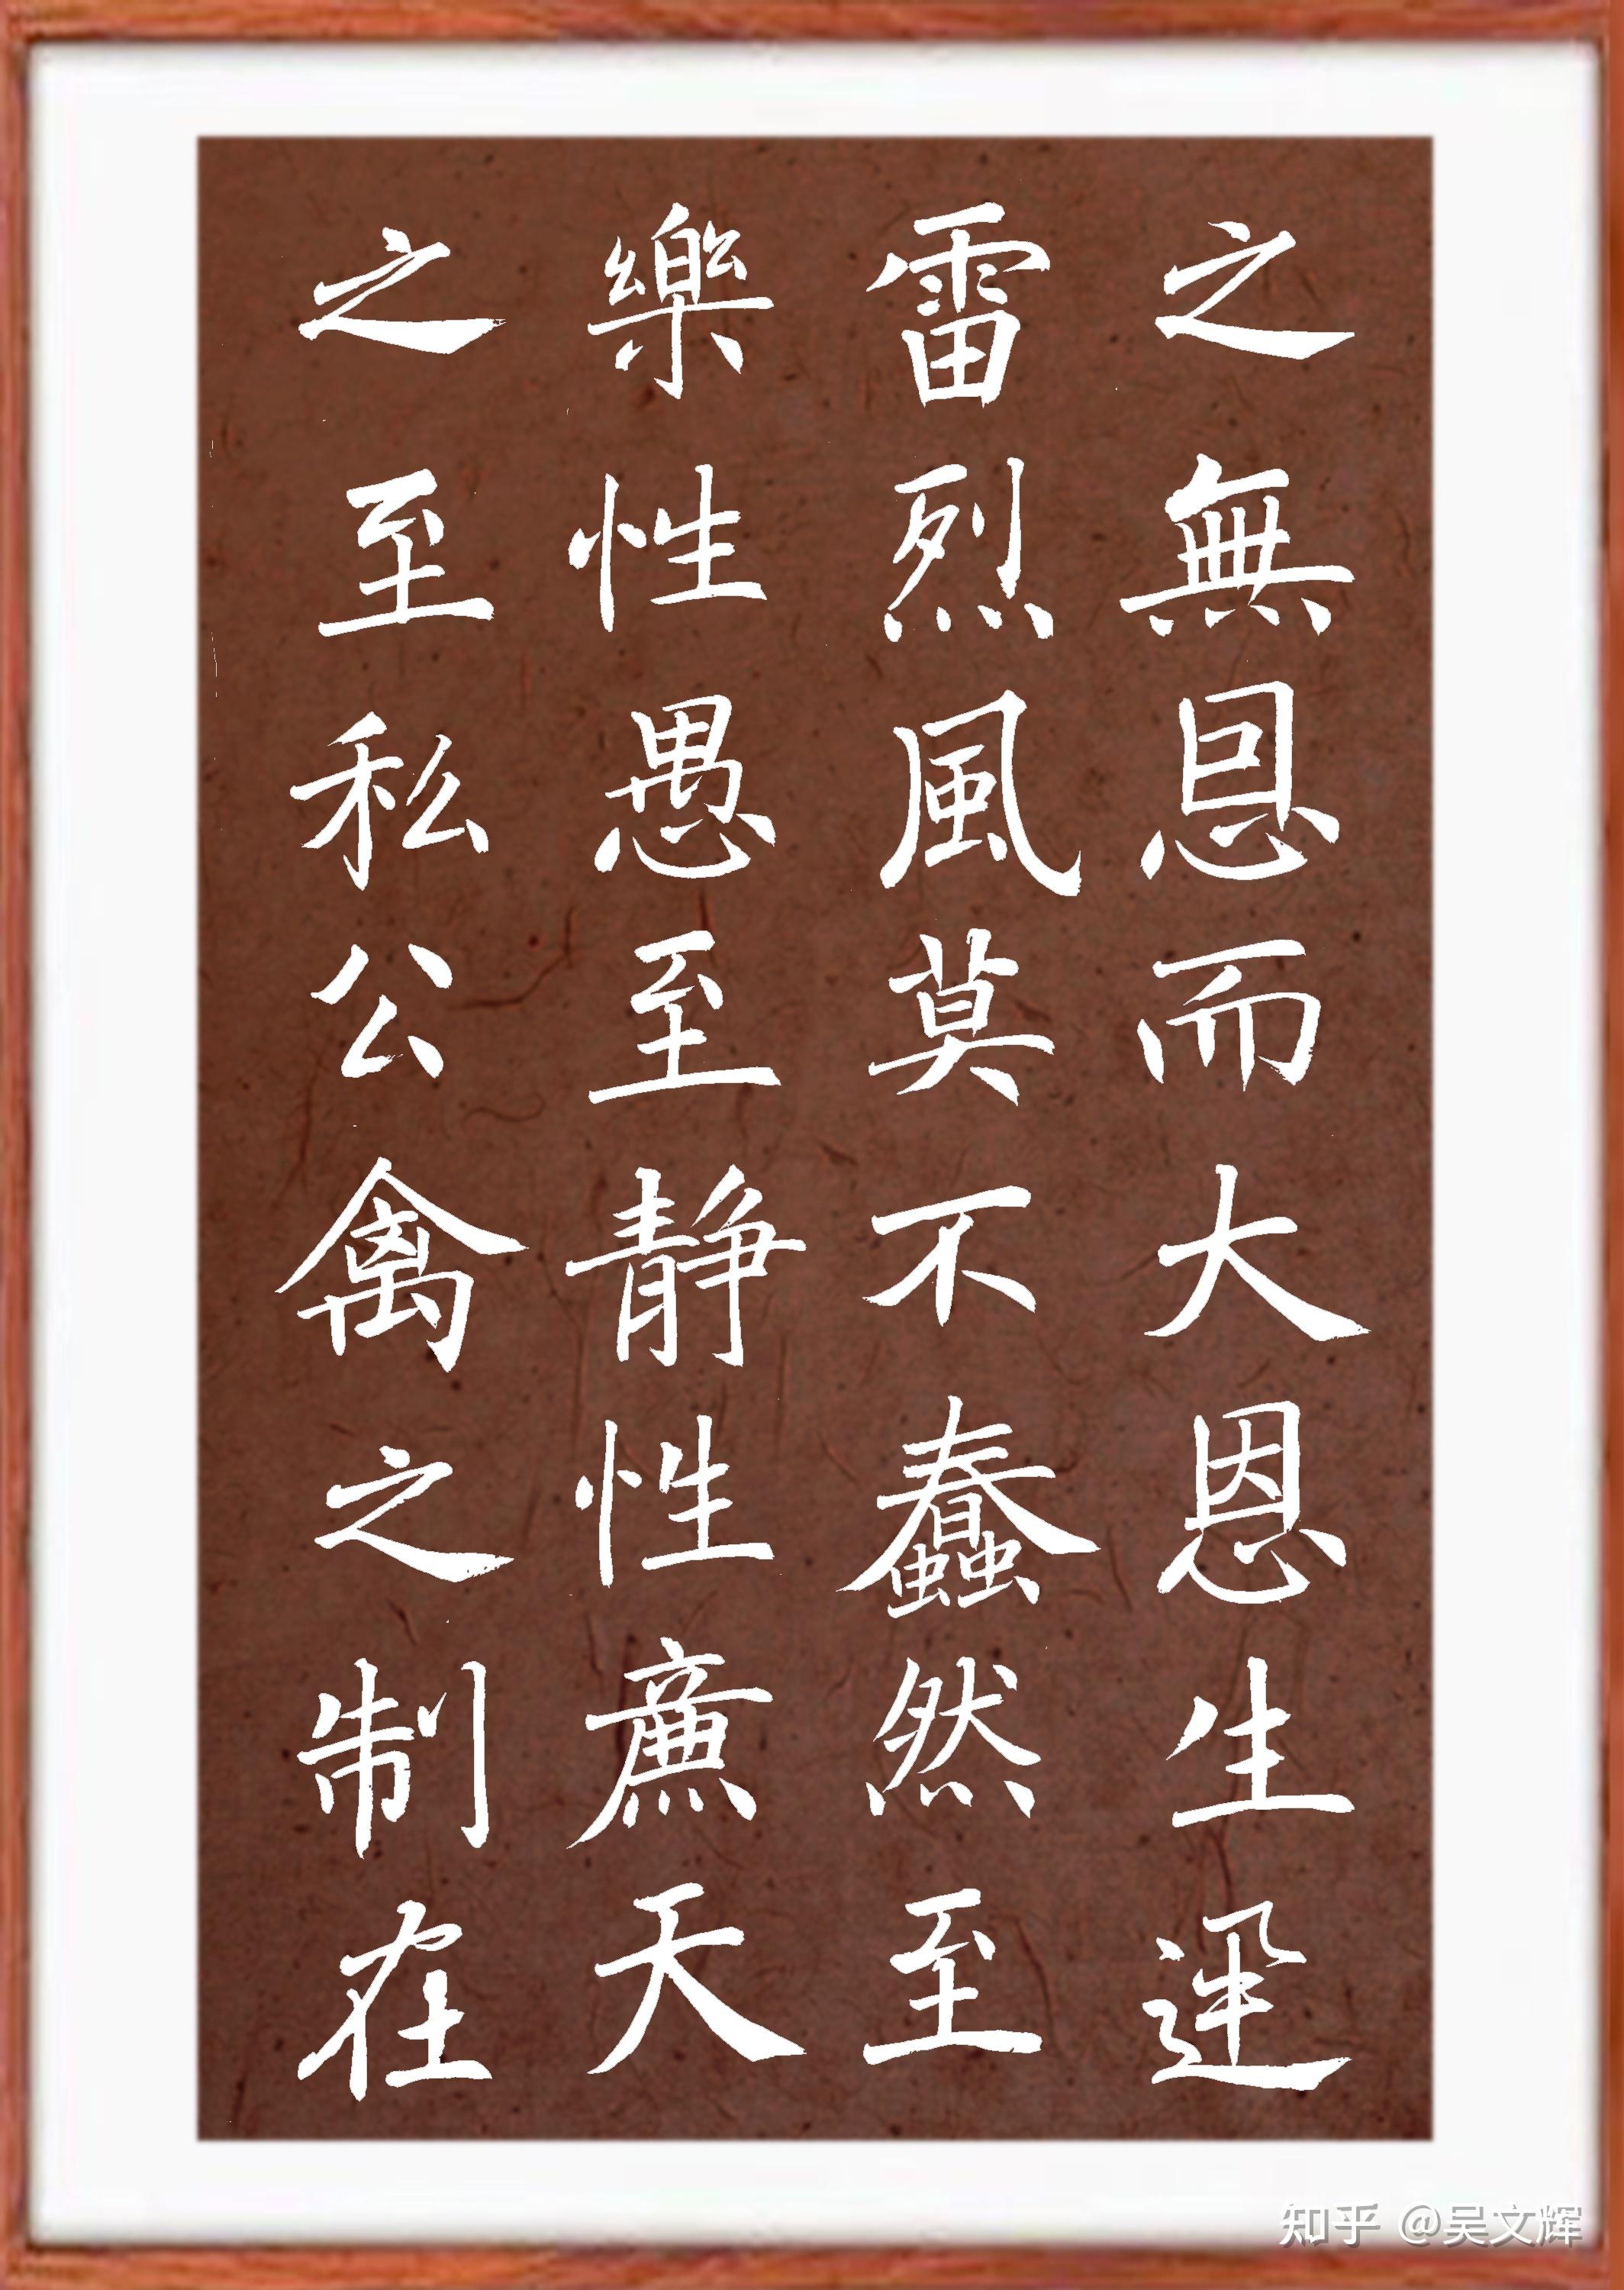 之無恩而大恩生迅
雷烈風莫不蠢然至
樂性愚至静性廉天
之至私公禽之制在
知乎 @吴文辉